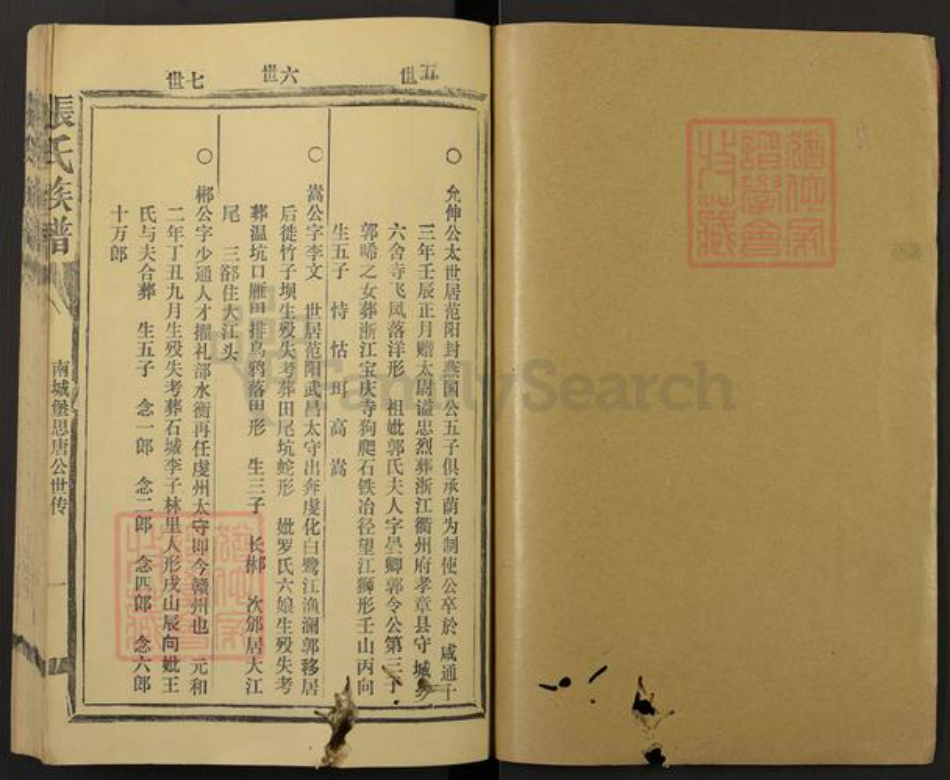 五世
○ 允伸公太世居范阳封燕国公五子俱承荫为制使公卒於 咸通十
三年壬辰正月赠太尉谥忠烈葬浙江衢州府孝章县守 城乡
六舍寺飞凤落洋形 祖妣郭氏夫人字昙卿郭令公第三子
郭晞之女葬浙江宝庆寺狗爬石铁冶径望江狮形壬山丙向
生五子 恃 怙 珂 高 嵩
六世
○ 嵩公字李文 世居范阳武昌太守出奔虔化白鹭江渔澜郭移居
后徙竹子坝生殁失考葬田尾坑蛇形 妣罗氏六娘生殁失考
葬温坑口雁田排乌鸦落田形 生三子 长郴 次邠居大江
尾 三郤住大江头
七世
○ 郴公字少通人才擢礼部水衡再任虔州太守即今赣州也 元和
二年丁丑九月生殁失考葬石城李子林里人形戌山辰向妣王
氏与夫合葬 生五子 念一郎 念二郎 念四郎 念六郎
十万郎
張氏族譜
南城堡思唐公世传
一
FamilySearch